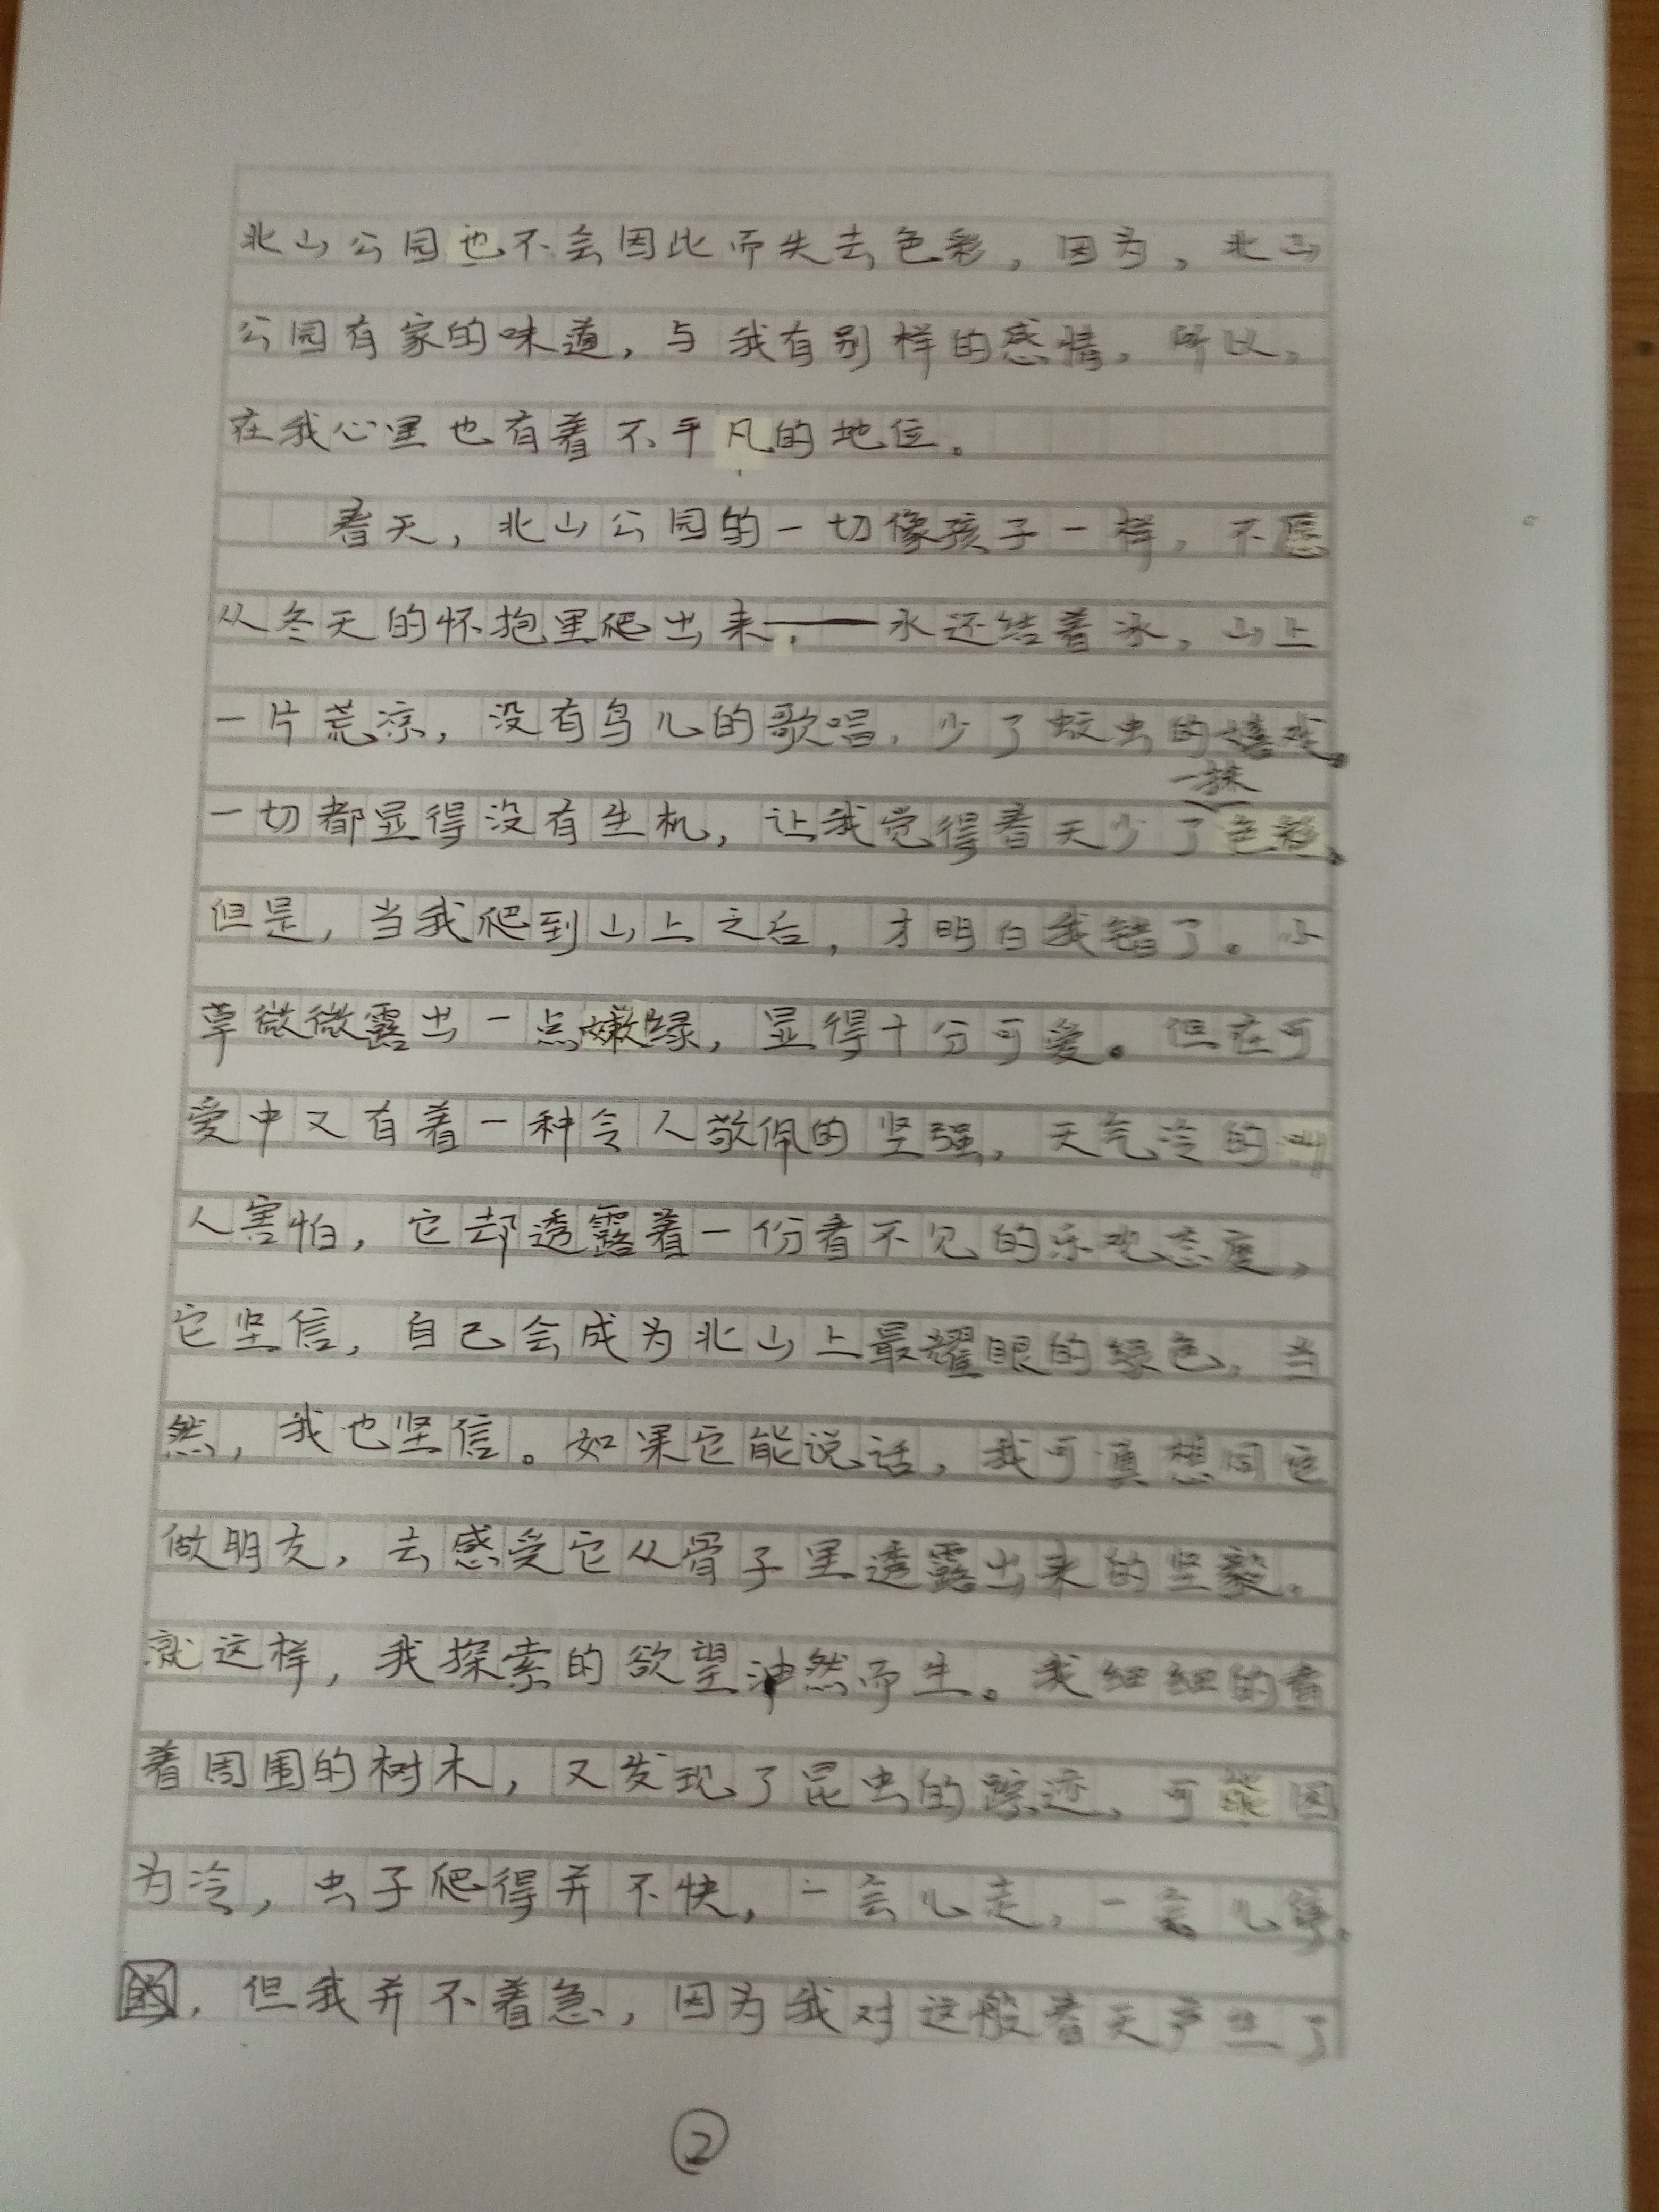 北山公园也不会因此而失去色彩，因为，北山
公园有家的味道，与我有别样的感情，所以，
在我心里也有着不平凡的地位。
春天，北山公园的一切像孩子一样，不愿
从冬天的怀抱里爬出来——水还结着冰，山上
一片荒凉，没有鸟儿的歌唱，少了蚊虫的嬉戏。
一切都显得没有生机，让我觉得春天少了一抹色彩，
但是，当我爬到山上之后，才明白我错了。小
草微微露出一点嫩绿，显得十分可爱。但在可
爱中又有着一种令人敬佩的坚强，天气冷的叫
人害怕，它却透露着一份看不见的乐观态度，
它坚信，自己会成为北山上最耀眼的绿色，当
然，我也坚信。如果它能说话，我可真想同它
做朋友，去感受它从骨子里透露出来的坚毅。
就这样，我探索的欲望油然而生。我细细的看
着周围的树木，又发现了昆虫的踪迹，可能因
为冷，虫子爬得并不快，一会儿走，一会儿停，
但我并不着急，因为我对这般春天产生了
②